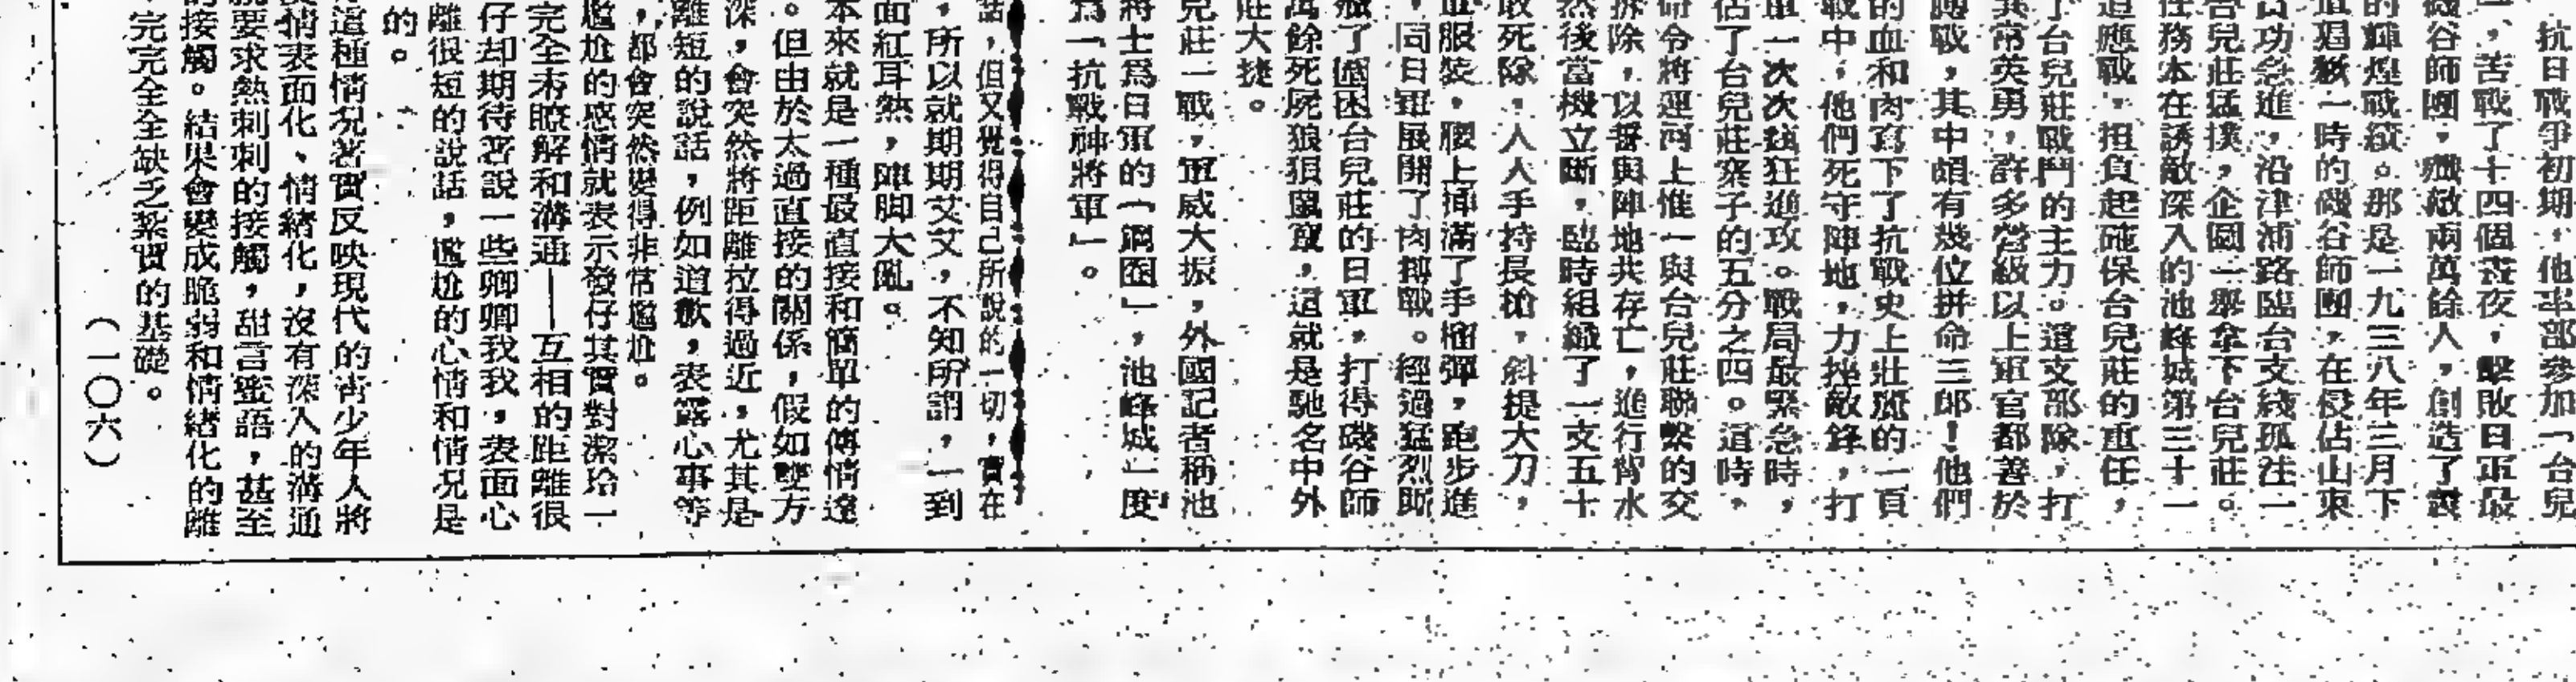 抗日戰爭初期，他率部參加「台兒
，苦戰了十四個晝夜，擊敗日軍最
磯谷師團，殲敵兩萬餘人，創造了
的輝煌戰績。那是一九三八年三月下
一時的磯谷師團，在侵佔山東
功急進，沿津浦路臨台支綫孤注一
台兒莊猛撲，企圖一舉拿下台兒莊。
任務本在誘敵深入的池峰城第三十一
應戰，担負起確保台兒莊的重任，
了台兒莊戰鬥的主力。這支部隊，打
異常英勇，許多營級以上軍官都善於
戰，其中頗有幾位拼命三郎！他們
的血和肉寫下了抗戰史上壯烈的一頁
戰中，他們死守陣地，力挫敵鋒，打
軍一次次瘋狂進攻。戰局最緊急時，
佔了台兒莊寨子的五分之四。這時，
命令將運河上惟一與台兒莊聯繫的交
拆除，以誓與陣地共存亡，進行背水
然後當機立斷，臨時組織了一支五十
敢死隊，人人手持長槍，斜提大刀，
服裝，腰上插滿了手榴彈，跑步進
，同日軍展開了肉搏戰。經過猛烈
了圍困台兒莊的日軍，打得磯谷師
萬餘死屍狼狽鼠竄，這就是馳名中外
莊大捷。
兒莊一戰，軍威大振，外國記者稱池
將士爲日軍的「鋼囤」，池峰城一度
爲「抗戰神將軍」。
話，但又覺得自己所說的一切，實在
，所以就期期艾艾，不知所謂，一到
面紅耳熱，陣脚大亂。
本來就是一種最直接和簡單的傳情達
。但由於太過直接的關係，假如雙方
深，會突然將距離拉得過近，尤其是
離短的說話，例如道歉，表露心事等
，都會突然變得非常尷尬。
尷尬的感情就表示發仔其實對潔玲一
完全未瞭解和溝通——互相的距離很
仔却期待著說一些卿卿我我，表面心
離很短的說話，尷尬的心情和情况是
的。
這種情况著實反映現代的青少年人將
情表面化、情緒化，沒有深入的溝通
就要求熱刺刺的接觸，甜言蜜語，甚至
的接觸。結果會變成脆弱和情緒化的離
，完完全全缺乏紮實的基礎。
（一〇六）